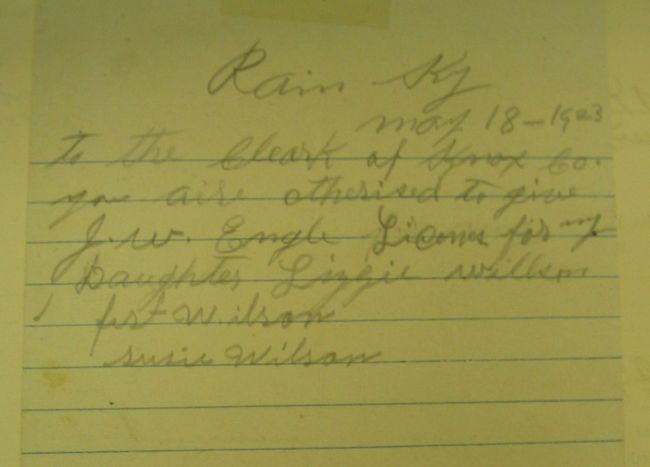 Rain Ky
may 18-1923
to the Cleark of Knox Co.
you aire otherised to give
J. W. Engle Licones for my
Daughter Lizzie willson
Wilson
susie Wilson